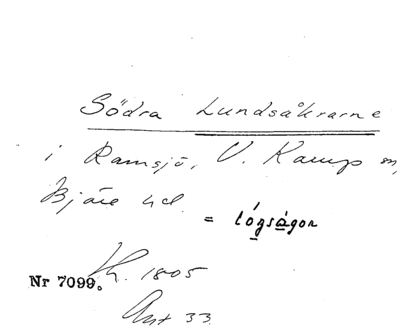 Södra Lundsåkrarne
i Ramsjö, V. Karup sn,
Bjäre hd.
= lógságon
Nr 7099. Kh. 1805
Akt 33